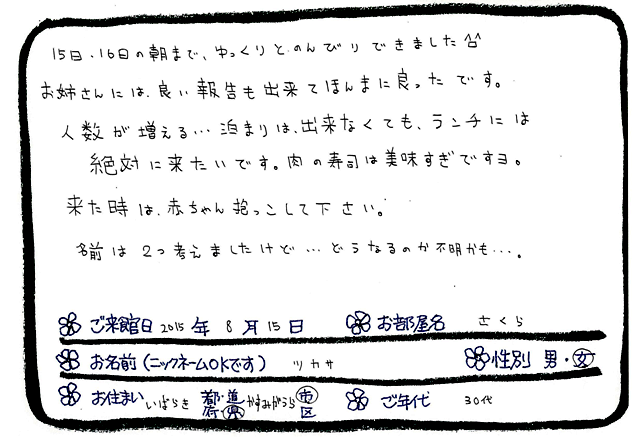 15日・16日の朝まで、ゆっくりとのんびりできました^^
お姉さんには、良い報告も出来てほんまに良ったです。
人数が増える…泊まりは、出来なくても、ランチには
絶対に来たいです。肉の寿司は美味すぎですヨ。
来た時は、赤ちゃん抱っこして下さい。
名前は2つ考えましたけど…どうなるのか不明かも…。
ご来館日 2015年 8月 15日 お部屋名 さくら
お名前(ニックネームOKです) ツカサ 性別 男・女
お住まい いばらき 都・道・府・県 かすみがうら 市 区 ご年代 30代